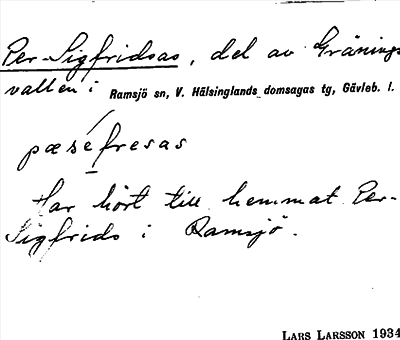 Per-Sigfridsas, del av Gränings
vallen i Ramsjö sn, V. Hälsinglands domsagas tg, Gävleb. l.
pæsefresas
Har hört till hemmat Per-
Sigfrids i Ramsjö.
LARS LARSSON 1934